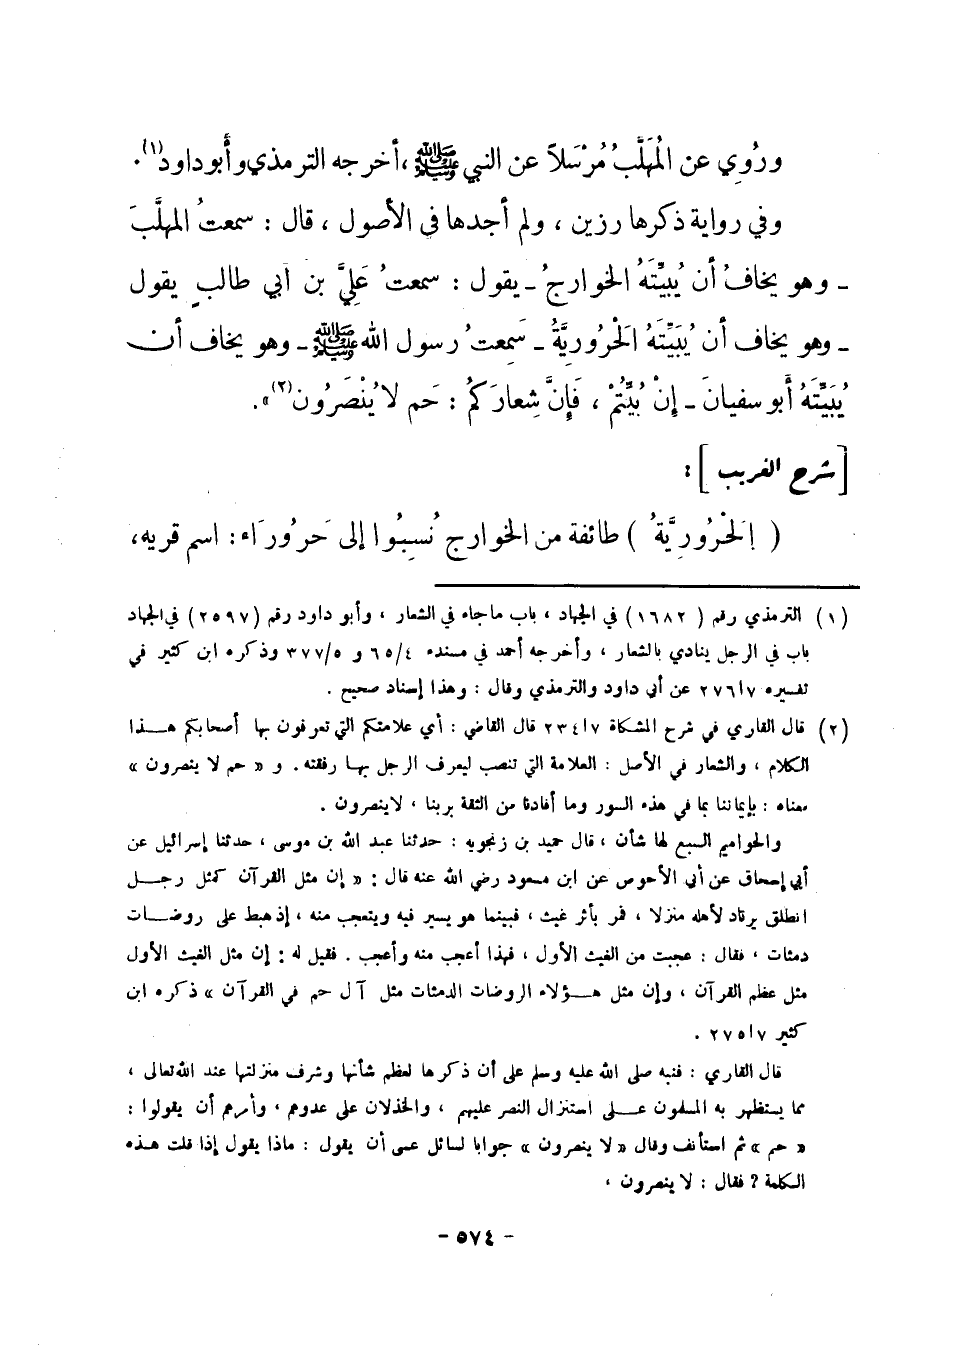 ورُوِي عن المُهَلَّبُ مُرْسَلاً عن النبي ﷺ ، أخرجه الترمذي وأبو داود(١).
وفي رواية ذكرها رزين ، ولم أجدها في الأصول ، قال : سمعتُ المهلَّبَ
ـ وهو يخافُ أن يُبيِّتَهُ الخوارجُ ـ يقول : سمعتُ عَليَّ بن أبي طالبٍ يقول
ـ وهو يخاف أن يُبَيِّتَهُ الحَرُورِيَّةُ ـ سَمِعتُ رسول الله ﷺ ـ وهو يخاف أن
يُبَيِّتَهُ أبو سفيانَ ـ إنْ بُيِّتُمْ ، فَإِنَّ شِعارَكُم : حَم لا يُنْصَرُون(٢)».
[ شرح الغريب ] :
( الحَرُورِيَّةُ ) طائفة من الخوارج نُسِبُوا إلى حَرُورَاء : اسم قريه،
(١) الترمذي رقم ( ١٦٨٢ ) في الجهاد ، باب ماجاء في الشعار ، وأبو داود رقم (٢٥٩٧) في الجهاد
باب في الرجل ينادي بالشعار ، وأخرجه أحمد في مسنده ٦٥/٤ و ٣٧٧/٥ وذكره ابن كثير في
تفسيره ٢٧٦/٧ عن أبي داود والترمذي وقال : وهذا إسناد صحيح .
(٢) قال القاري في شرح المشكاة ٢٣٤/٧ قال القاضي : أي علامتكم التي تعرفون بها أصحابكم هـذا
الكلام ، والشعار في الأصل : العلامة التي تنصب ليعرف الرجل بهـا رفقته . و « حم لا ينصرون »
معناه : بإيماننا بما في هذه السور وما أفادنا من الثقة بربنا ، لاينصرون .
والحواميم السبع لها شأن ، قال حميد بن زنجويه : حدثنا عبد الله بن موسى ، حدثنا إسرائيل عن
أبي إسحاق عن أبي الأحوص عن ابن مسعود رضي الله عنه قال : « إن مثل القرآن كمثل رجـل
انطلق يرتاد لأهله منزلا ، فمر بأثر غيث ، فبينما هو يسير فيه ويتعجب منه ، إذ هبط على روضـات
دمثات ، فقال : عجبت من الغيث الأول ، فهذا أعجب منه وأعجب . فقيل له : إن مثل الغيث الأول
مثل عظم القرآن ، وإن مثل هـؤلاء الروضات الدمثات مثل آل حم في القرآن » ذكره ابن
كثير ٢٧٥/٧ .
قال القاري : فنبه صلى الله عليه وسلم على أن ذكرها لعظم شأنها وشرف منزلتها عند الله تعالى ،
مما يستظهر به المسلمون عـلى استنزال النصر عليهم ، والخذلان على عدوهم ، وأمرهم أن يقولوا :
« حم » ثم استأنف وقال « لا ينصرون » جوابا لسائل عسى أن يقول : ماذا يقول إذا قلت هـذه
الكلمة ؟ فقال : لا ينصرون ،
- ٥٧٤ -